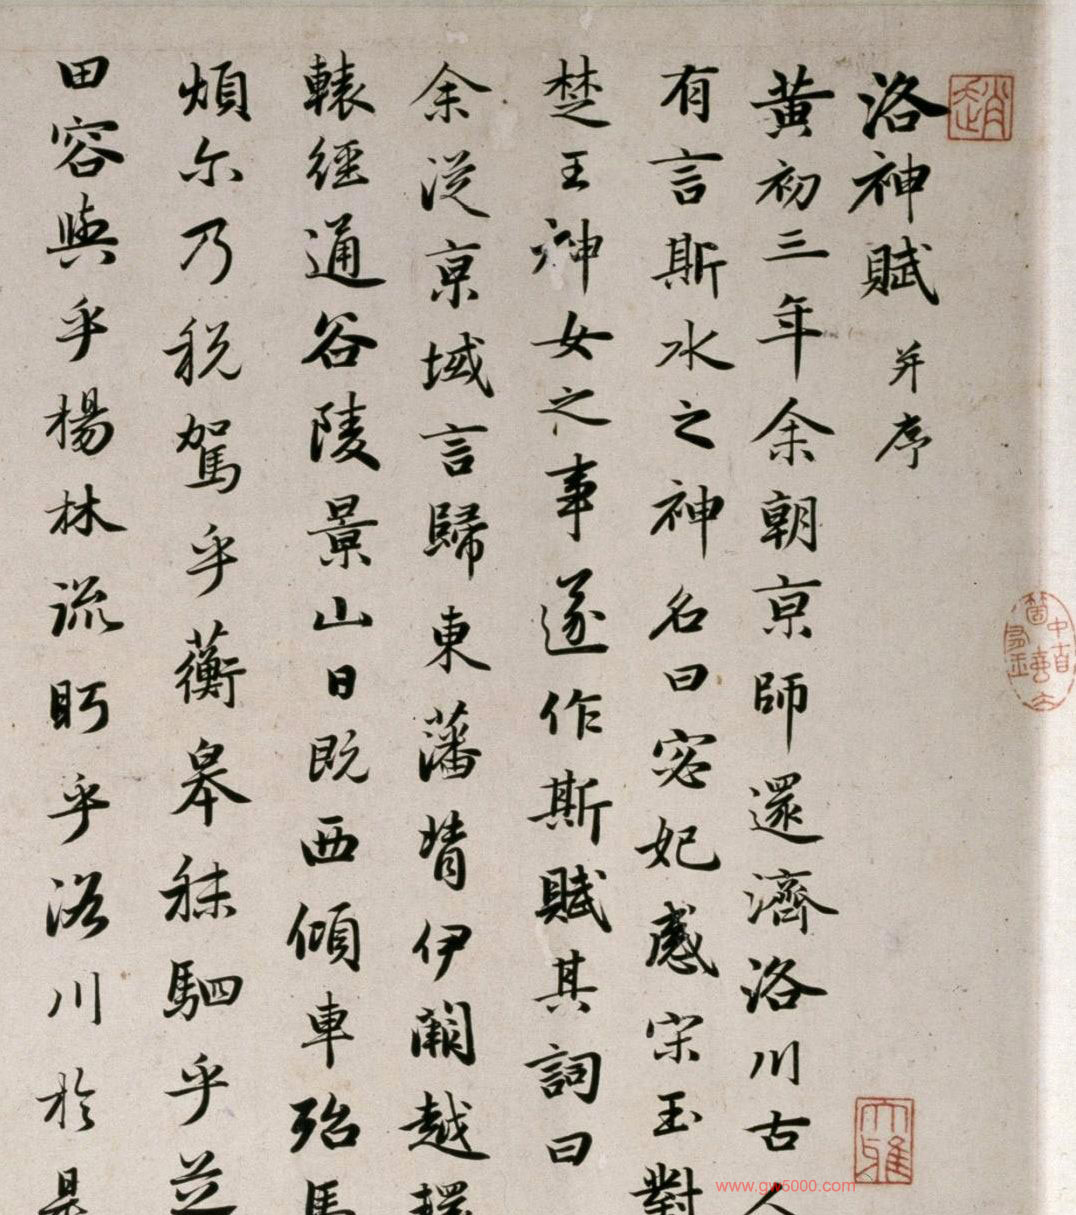 趙
洛神賦并序
黄初三年余朝京師還濟洛川古人
有言斯水之神名曰宓妃感宋玉對
楚王神女之事遂作斯賦其詞曰
余從京域言歸東藩背伊闕越轘
轅經通谷陵景山日既西傾車殆馬
煩尔乃税駕乎蘅皋秣駟乎芝
田容與乎楊林流眄乎洛川於是
大雅
www.gw5000.com